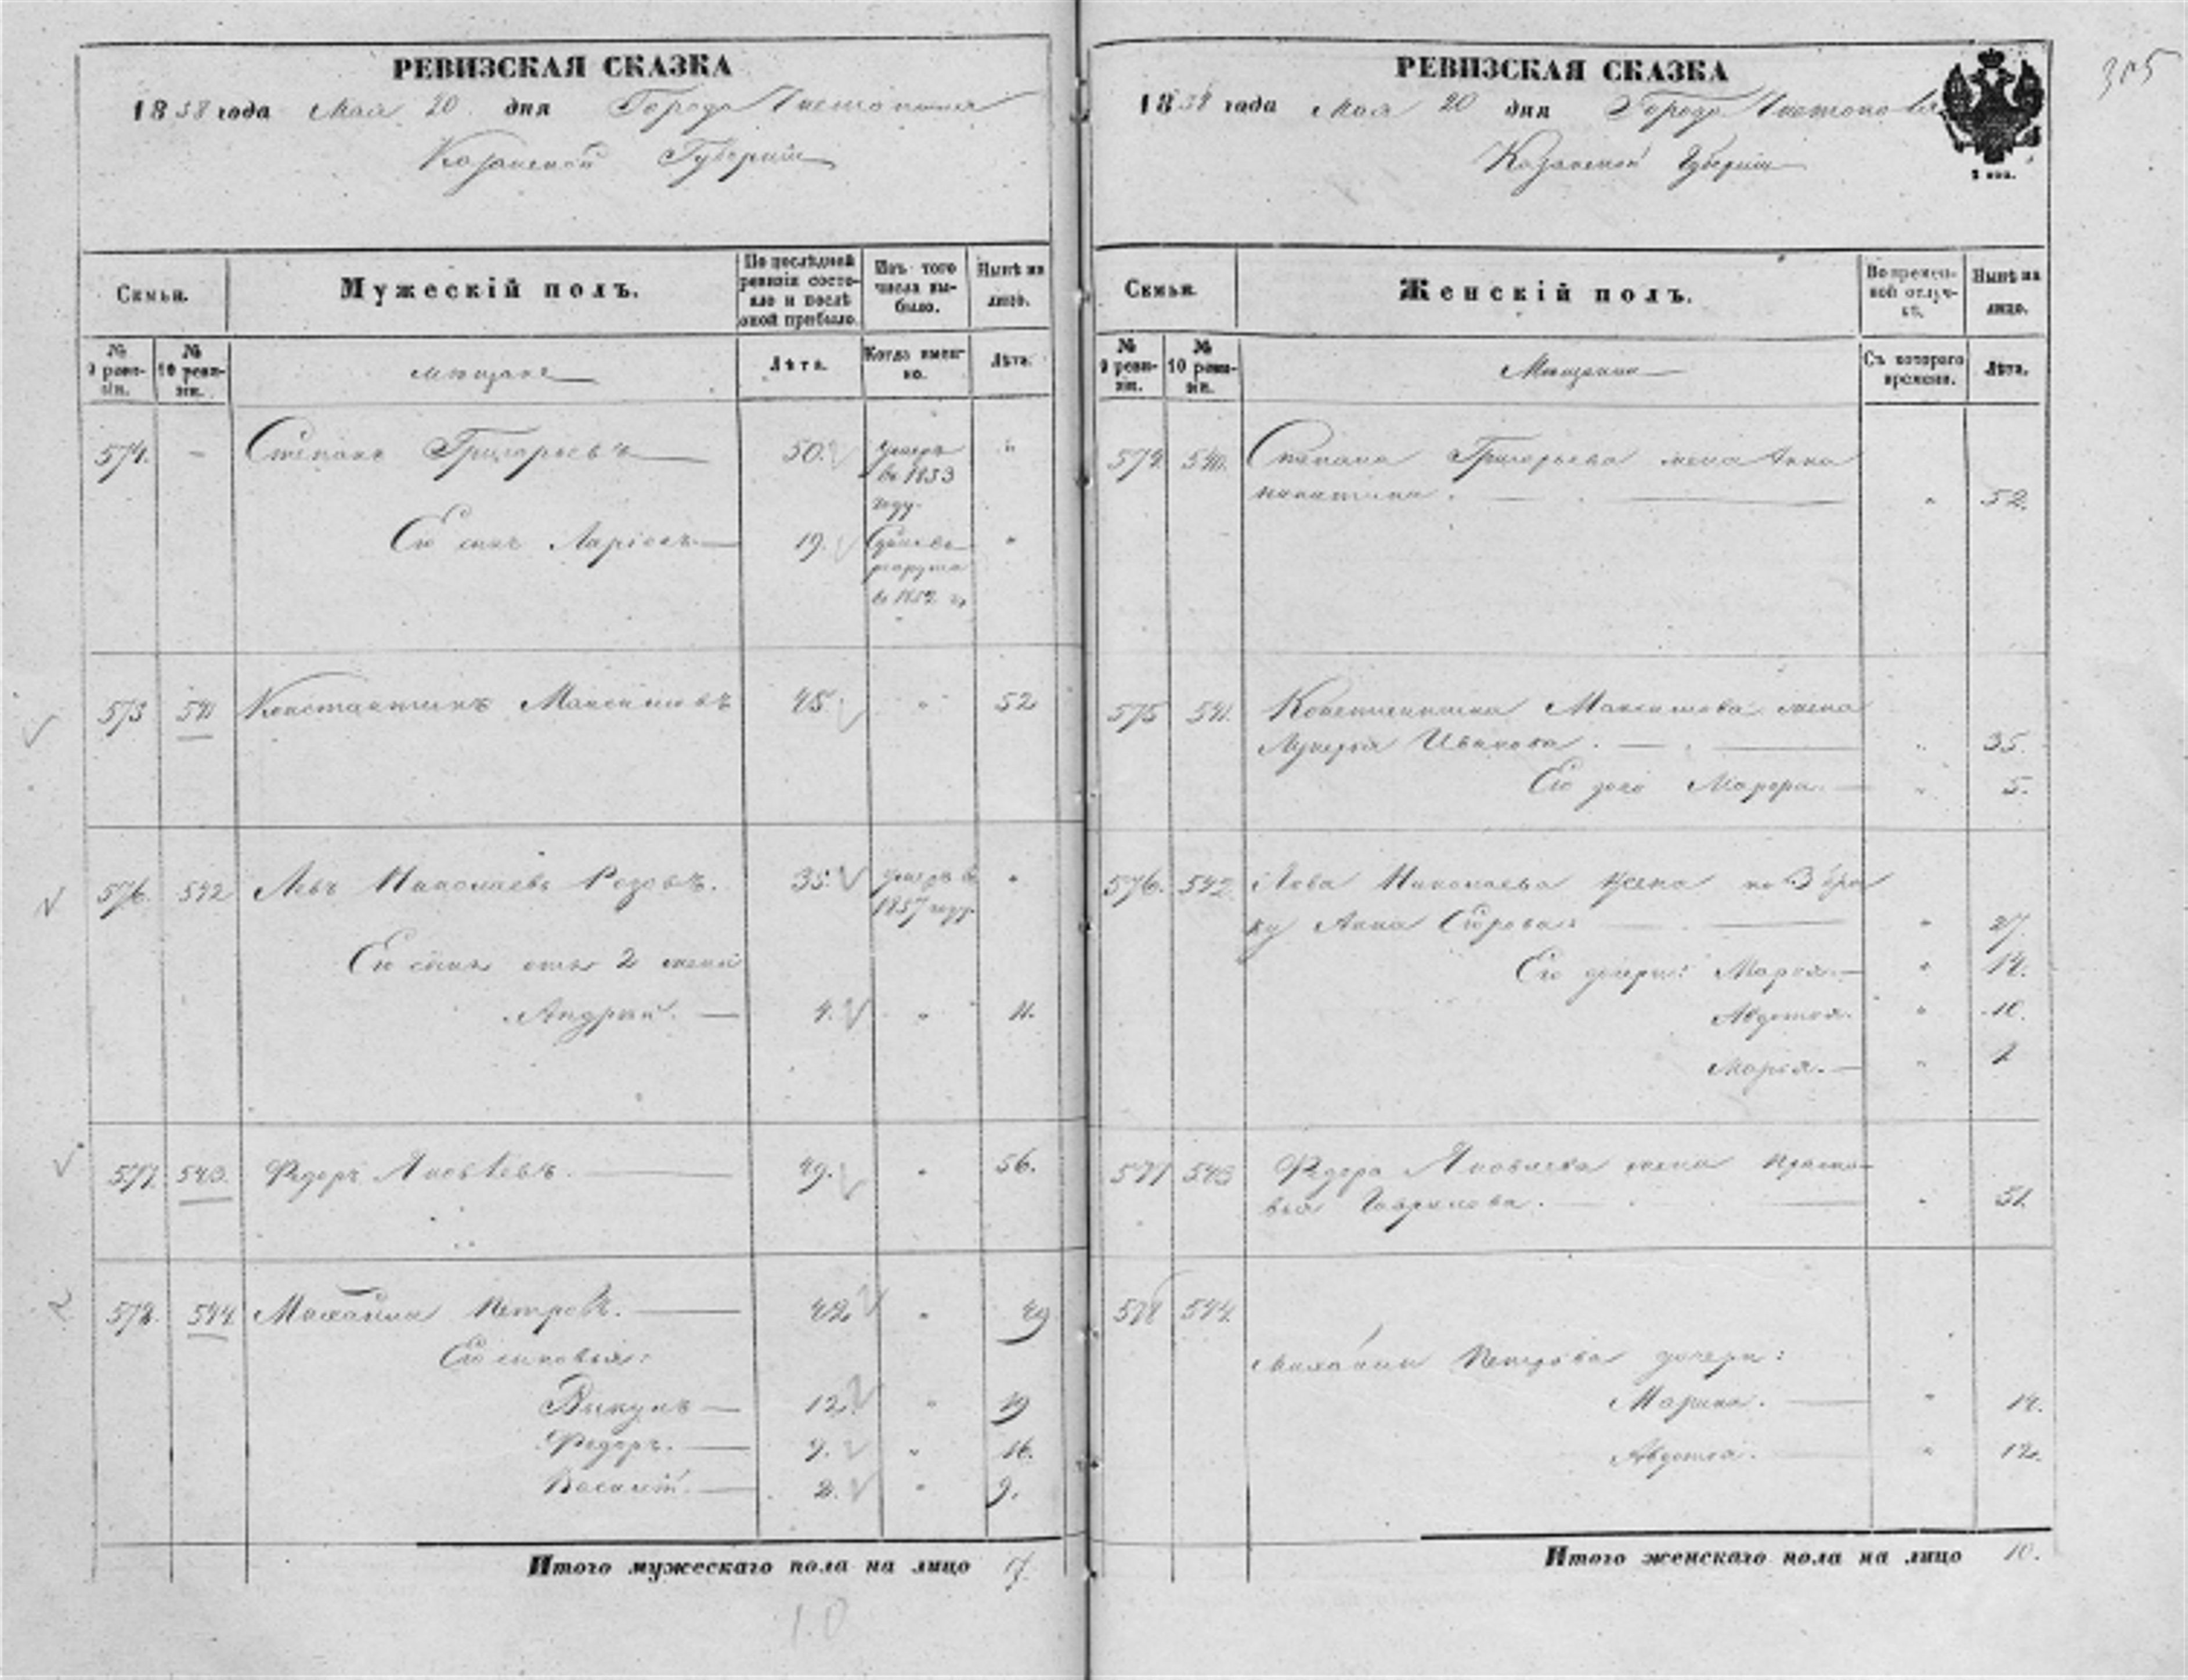 РЕВИЗСКАЯ СКАЗКА
1858 года Мая 20 дня Города Чистополя
Казанской Губерніи
Семьи.
Мужескій полъ.
По послѣдней ревизіи состояло и послѣ оной прибыло.
Изъ того числа выбыло.
Нынѣ на лицо.
№ 9 ревизіи.
№ 10 ревизіи.
мещане
Лѣта.
Когда именно.
Лѣта.
574. - Степанъ Григорьевъ 50. умеръ въ 1853 году "
Его сынъ Ларіонъ 19. въ рекруты въ 1852 г. "
575 541 Константинъ Максимовъ 45. " 52
576. 542 Левъ Николаевъ Розовъ. 35. умеръ въ 1857 году "
Его сынъ отъ 2 жены
Андрей. 4. " 11.
577. 543. Федоръ Яковлевъ. 49. " 56.
578. 544. Михайла Петровъ. 42 " 49
Его сыновья:
Викулъ 12. " 19
Федоръ. 9. " 16.
Василій. 2. " 9.
Итого мужескаго пола на лицо 7.
10
РЕВИЗСКАЯ СКАЗКА
1858 года Мая 20 дня Города Чистополя
Казанской Губерніи
305
Семьи.
Женскій полъ.
Во временной отлучкѣ.
Нынѣ на лицо.
№ 9 ревизіи.
№ 10 ревизіи.
Мещанки
Съ котораго времени.
Лѣта.
574. 540. Степана Григорьева жена Анна
" 52.
575 541. Константина Максимова жена
Лукерья Иванова. " 35.
Его дочь " 5.
576. 542. Льва Николаева жена по 3 бра
ку Анна " 27.
Его дочери: Марья. " 14.
Авдотья. " 10.
Марья. " 1
577 543 Федора Яковлева жена
Гаврилова. " 51.
578 544. Михайлы Петрова дочери:
Марина. " 14.
Авдотья. " 12.
Итого женскаго пола на лицо 10.